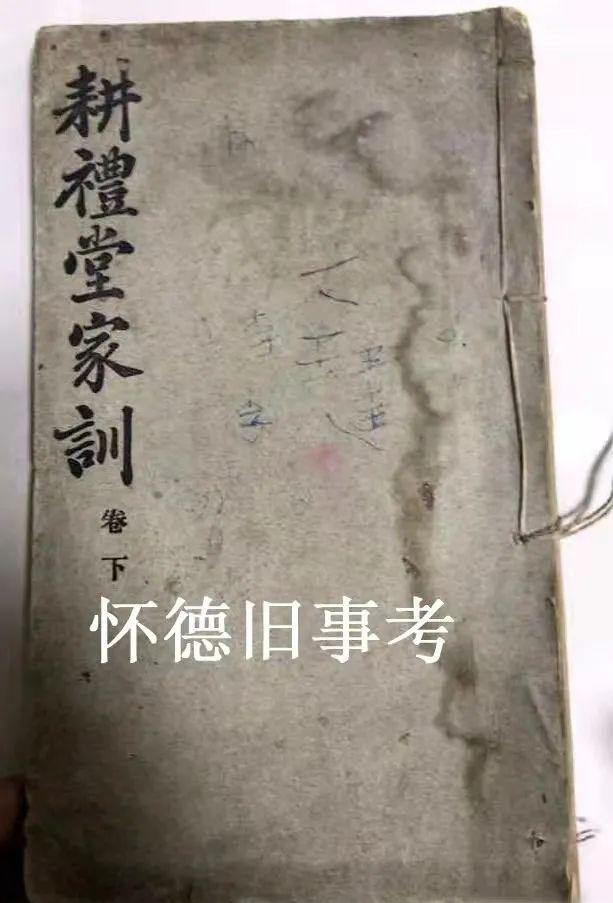 耕禮堂家訓
卷下
怀德旧事考